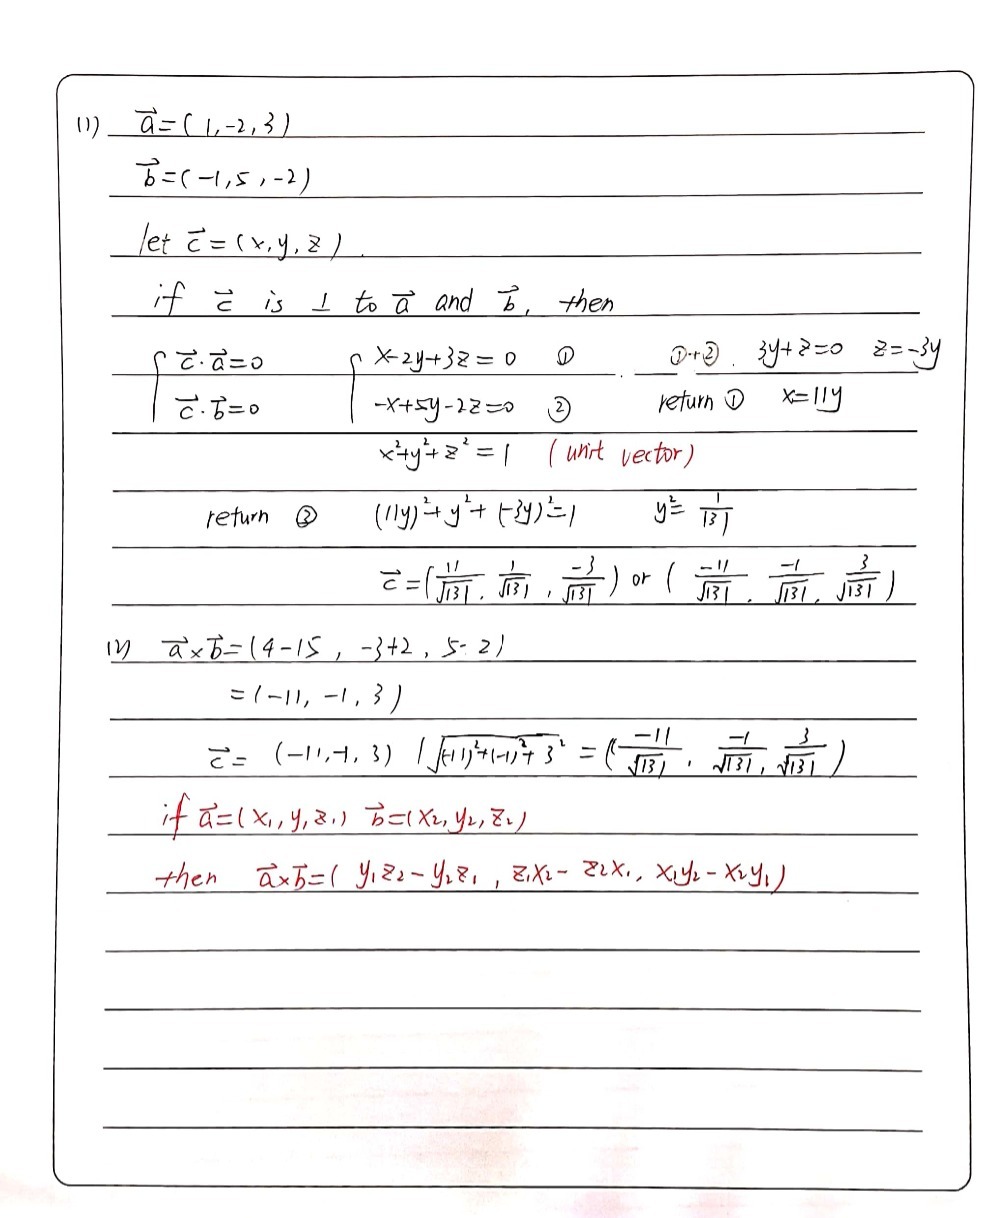 (1) a⃗=(1,-2,3)
b⃗=(-1,5,-2)
let c⃗=(x,y,z).
if c⃗ is ⊥ to a⃗ and b⃗, then
{ c⃗·a⃗=0 { x-2y+3z=0 ① ①+②. 3y+z=0 z=-3y
c⃗·b⃗=0 -x+5y-2z=0 ② return ① x=11y
x²+y²+z²=1 (unit vector)
return ③ (11y)²+y²+(-3y)²=1 y²=1/131
c⃗=(11/√131, 1/√131, -3/√131) or (-11/√131, -1/√131, 3/√131)
(2) a⃗×b⃗=(4-15, -3+2, 5-2)
=(-11, -1, 3)
c⃗= (-11,-1,3) /√(-11)²+(-1)²+3² =(-11/√131, -1/√131, 3/√131)
if a⃗=(x₁,y₁,z₁) b⃗=(x₂,y₂,z₂)
then a⃗×b⃗=(y₁z₂-y₂z₁, z₁x₂-z₂x₁, x₁y₂-x₂y₁)